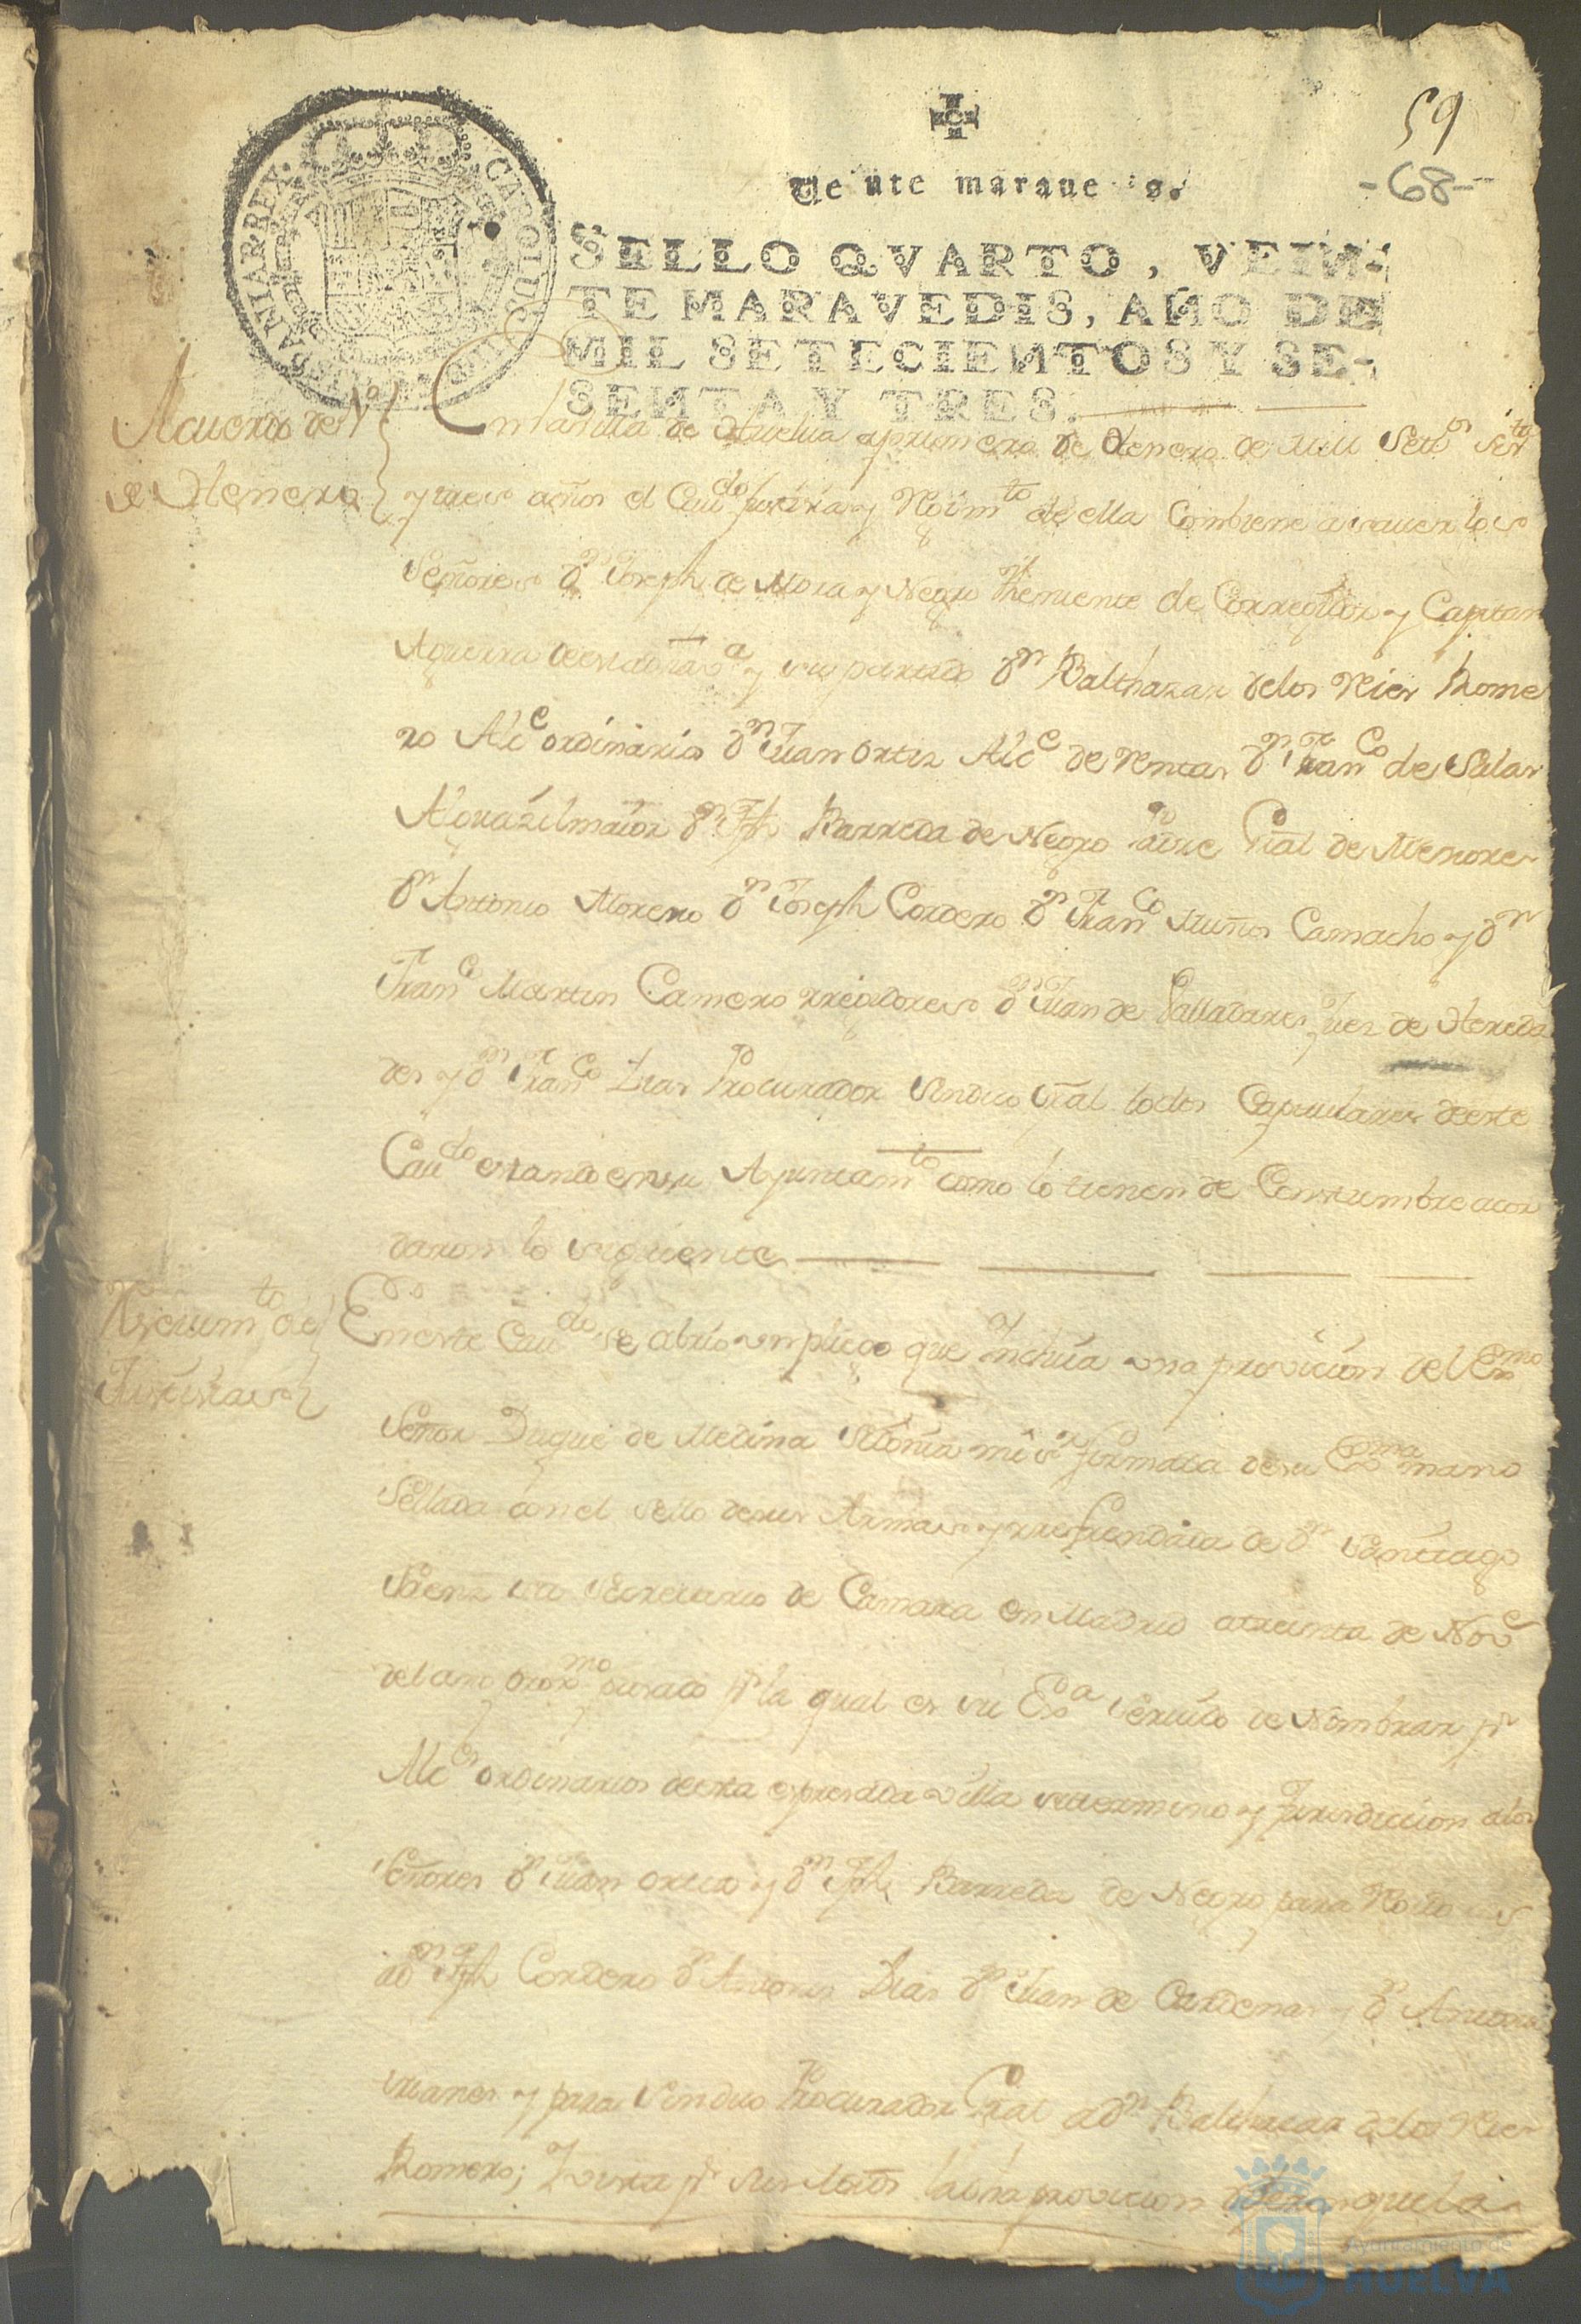 59
-68-
Veinte maraue s.
SELLO QVARTO, VEIN-
TE MARAVEDIS, AÑO DE
MIL SETECIENTOS Y SE-
SENTA Y TRES.
CAROLUS III HISPANIAR. REX.
Acuerdo de 1º
de Henero
En la villa de Huelva a primero de Henero de Mill Setos sesta
y tres años el Caudo Justizia y Rexímto de ella Combiene a sauer los
Señores Dn Joseph de Mora y Negro Theniente de Corregidor y Capitan
Aguerra de esta dha va y su partido Dn Balthazar de los Rios Rome
ro Alce ordinario Dn Juan Ortiz Alce de rentas Dn Franco de Salas
Alguázil maior Dn Jph Barreda de Negro Padre Gral de Menores
Dn Antonio Moreno Dn Joseph Cordero Dn Franco Muños Camacho y Dn
Franco Martin Camero rrexidores Dn Juan de Valladares Juez de Hereda
des y Dn Franco Dias Procurador Sindico Gral todos Capitulares de este
Caudo estando en su Ayuntamto como lo tienen de Constumbre acor
daron lo siguiente
Resciuimto de
Justizias
En este Caudo se abrio un pliego que Incluia una provicion del Exmo
Señor Duque de Medina Sidonia mi sr firmada de su Exma mano
Sellada con el sello de sus Armas y rrefrendada de Dn Santiago
Saenz su Secretario de Camara en Madrid a treinta de Nove
del año proxmo pasado pr la qual es su Exa Seruido de Nombrar pr
Alces ordinarios de esta expresada villa su termino y Jurisdiccion a los
Señores Dn Juan Ortiz y Dn Jph Barreda de Negro para Rexidores
a Dn Jph Cordero Dn Antonio Dias Dn Juan de Cardenas y Dn Antonio
y para Sindico Procurador Gral a Dn Balthazar de los Rios
Romero; I vista pr sus Mrds la dha provicion
Ayuntamiento de
HUELVA